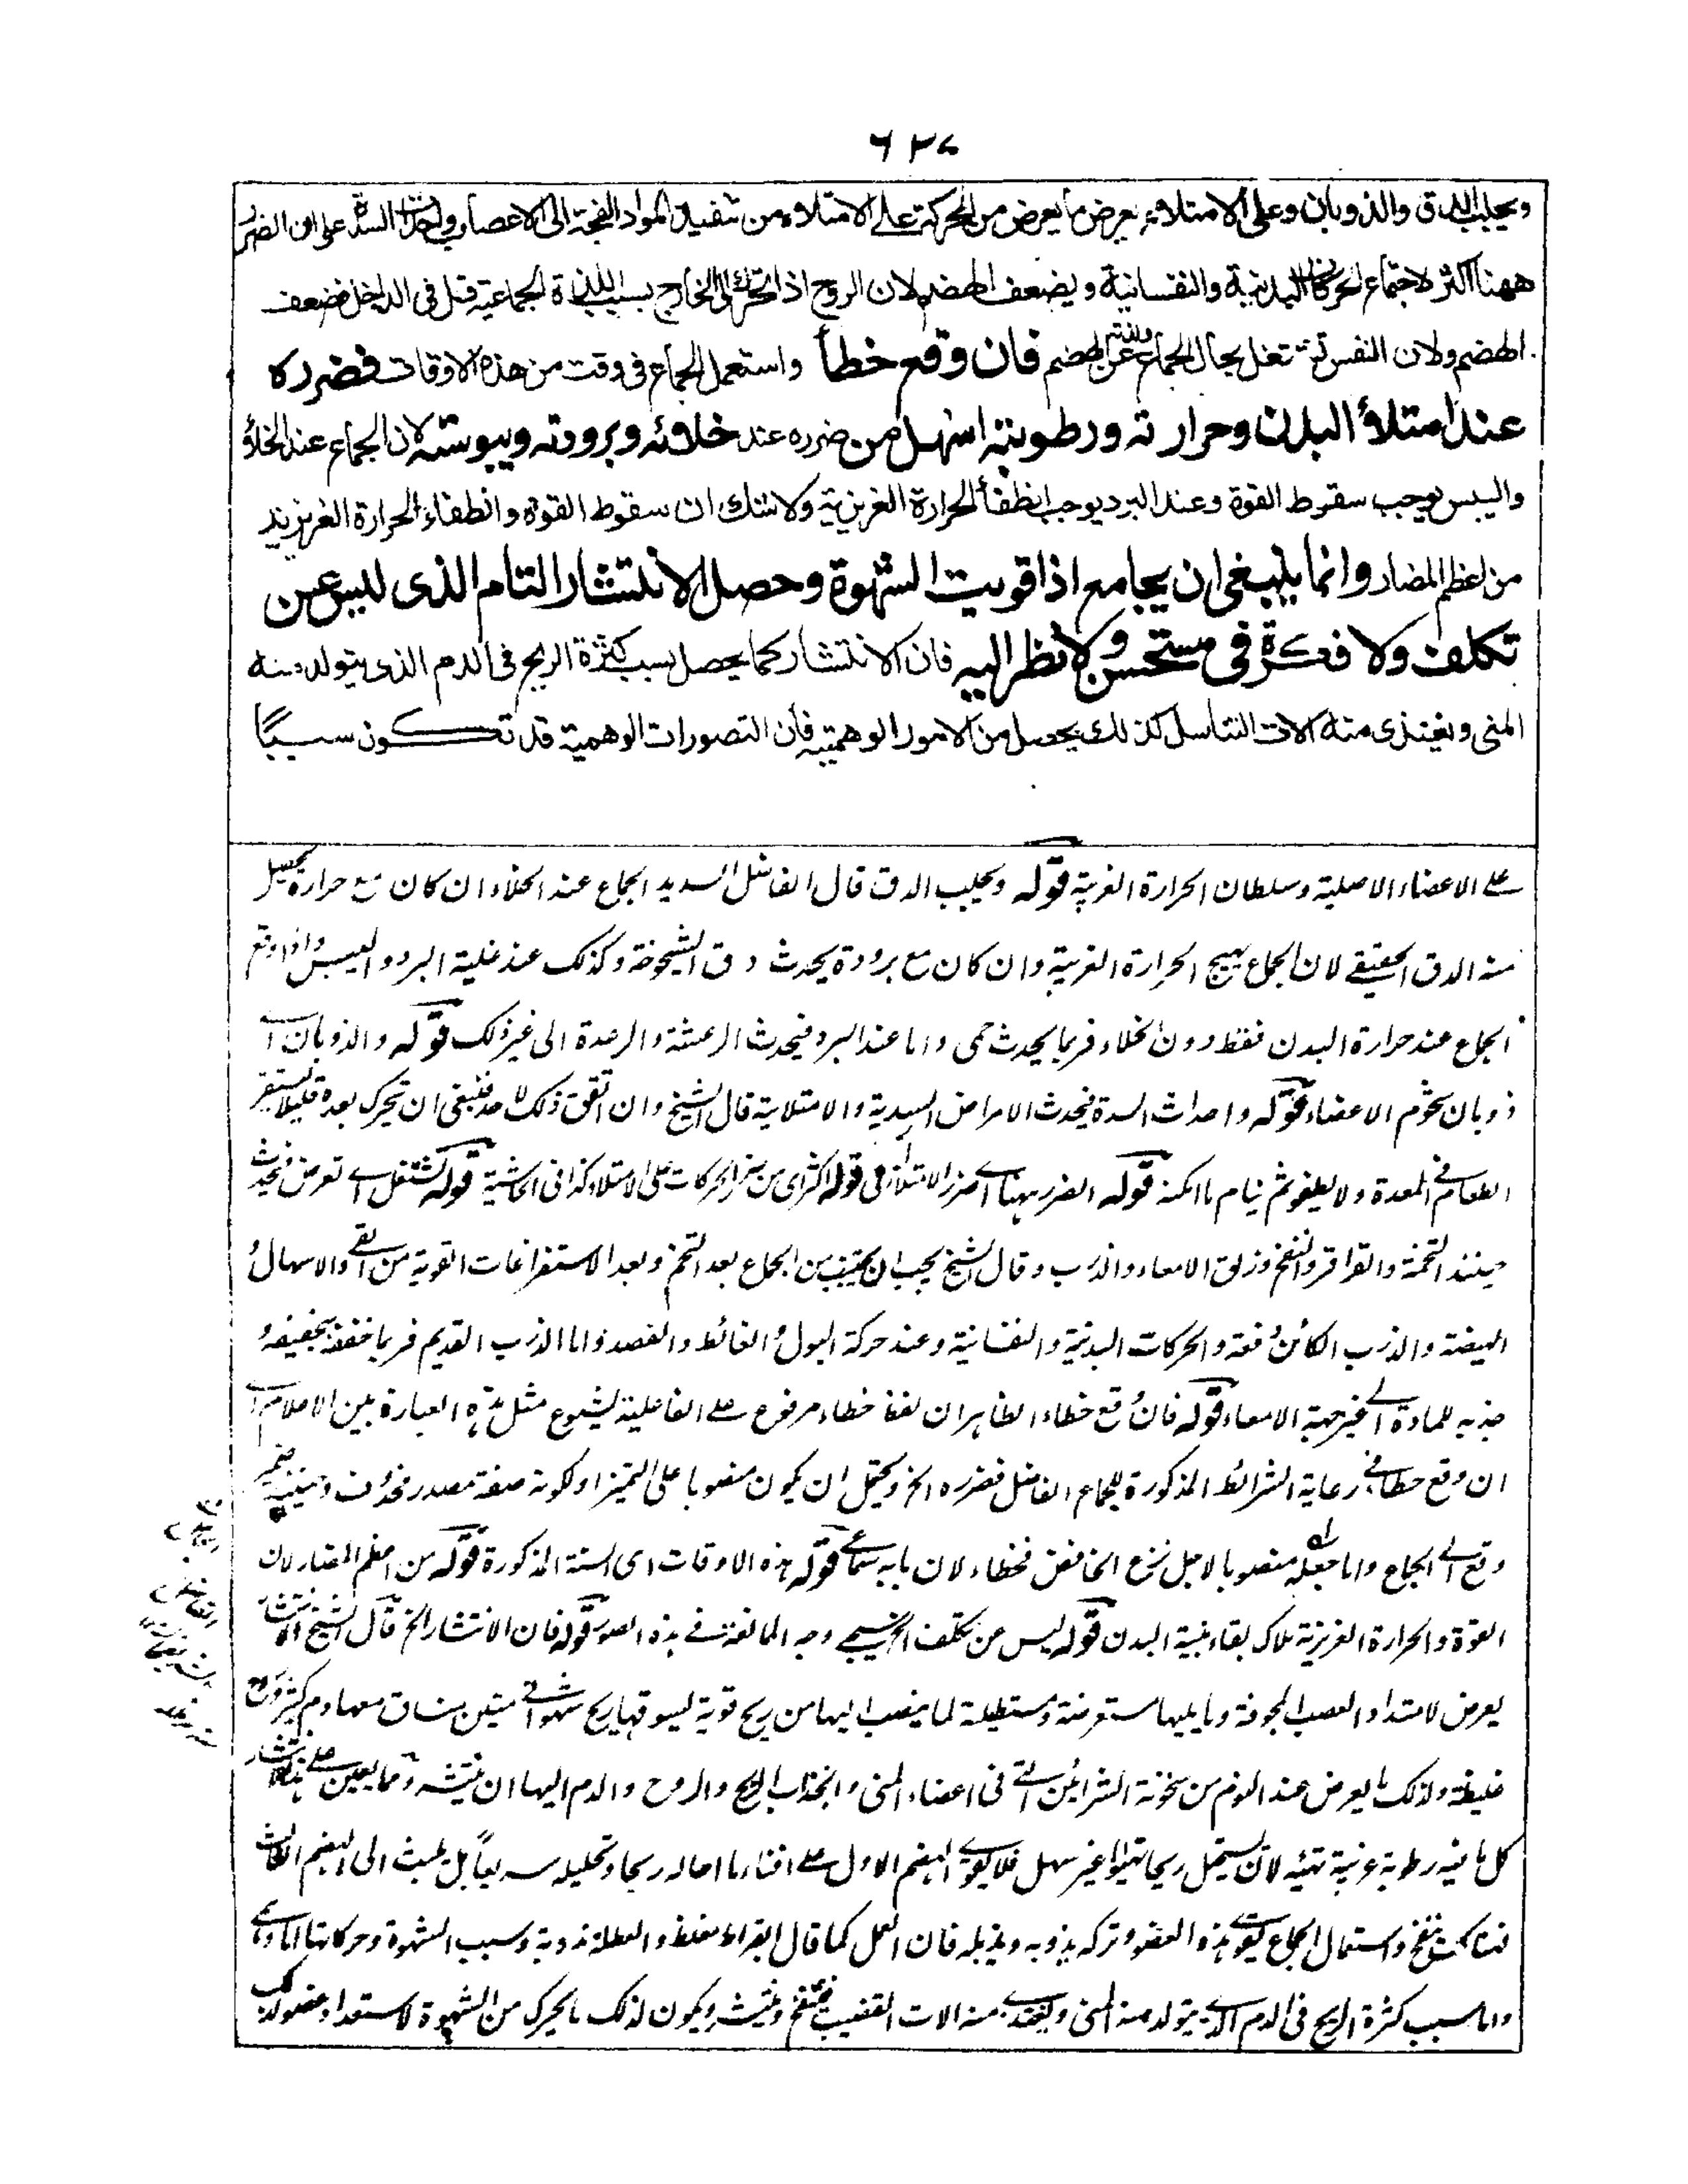 ٦٢٧
ويجلب الدق والذوبان وعلى الامتلاء يعرض ما يعرض من الحركة على الامتلاء من تنفيذ المواد الفجة الى الاعصاب واحداث السدة على ان الضرر
ههنا اكثر لاجتماع الحركات البدنية والنفسانية ويضعف الهضم لان الروح اذا تحرك الى الخارج بسبب اللذة الجماعية قل فى الداخل فضعف
الهضم ولان النفس تشتغل بحال الجماع عن الهضم فان وقع خطأ واستعمل الجماع فى وقت من هذه الاوقات فضرره
عند امتلاء البدن وحرارته ورطوبته اسهل من ضرره عند خلائه وبرودته ويبوسته لان الجماع عند الخلاء
واليبس يوجب سقوط القوة وعند البرد يوجب انطفاء الحرارة الغريزية ولا شك ان سقوط القوة وانطفاء الحرارة الغريزية
من اعظم المضار وانما ينبغى ان يجامع اذا قويت الشهوة وحصل الانتشار التام الذى ليس عن
تكلف ولا فكرة فى مستحسن ولا نظر اليه فان الانتشار كما يحصل بسبب كثرة الريح فى الدم الذى يتولد منه
المنى ويغتذى منه الات التناسل كذلك يحصل من الامور الوهمية فان التصورات الوهمية قد تكون سببًا
على الاعضاء الاصلية وسلطان الحرارة الغريبة قوله ويجلب الدق قال الفاضل السديد الجماع عند الخلاء ان كان مع حرارة يحصل
منه الدق الحقيقى لان الجماع يهيج الحرارة الغريبة وان كان مع برودة يحدث دق الشيخوخة وكذلك عند غلبة البرد واليبس واذا وقع
الجماع عند حرارة البدن فقط دون الخلاء فربما يحدث حمى واما عند البرد فيحدث الرعشة والرعدة الى غير ذلك قوله والذوبان اى
ذوبان شحوم الاعضاء قوله واحداث السدة فيحدث الامراض السددية والامتلائية قال الشيخ وان اتفق ذلك لاحد فينبغى ان يتحرك بعده قليلا ليستقر
الطعام فى المعدة ولا يطفو ثم ينام ما امكنه قوله الضرر ههنا اى ضرر الامتلاء فى قوله اكثر اى من ضرر الحركات على الامتلاء كذا فى الحاشية قوله تشتغل اى تعرض فيحدث
حينئذ التخمة والقراقر والنفخ وزلق الامعاء والذرب وقال الشيخ يجب ان يجتنب من الجماع بعد التخم وبعد الاستفراغات القوية من القئ والاسهال و
الهيضة والذرب الكائن دفعة والحركات البدنية والنفسانية وعند حركة البول والغائط والفصد واما الذرب القديم فربما خففه بتجفيفه و
جذبه للمادة الى غير جهة الامعاء قوله فان وقع خطاء الظاهر ان لفظ خطاء مرفوع على الفاعلية لشيوع مثل هذه العبارة بين الاعلام اى
ان وقع خطأ فى رعاية الشرائط المذكورة للجماع الفاضل فضرره الخ ويحتمل ان يكون منصوبا على التميز او لكونه صفة مصدر محذوف وحينئذ ضمير
وقع الى الجماع واما جعله منصوبا لاجل نزع الخافض فخطاء لان بابه سماعى قوله هذه الاوقات اى الستة المذكورة قوله من اعظم المضار لان
القوة والحرارة الغريزية ملاك بقاء بنية البدن قوله ليس عن تكلف الخ سيجئ وجه الممانعة فى هذه الصور قوله فان الانتشار الخ قال الشيخ الانتشار
يعرض لامتداد العصب المجوفة وما يليها مستعرضة ومستطيلة لما ينصب اليها من ريح قوية يسوقها ريح شهوانى متين ينساق معها دم كثير وروح
غليظة ولذلك ما يعرض عند النوم من سخونة الشرائين التى فى اعضاء المنى وانجذاب الريح والروح والدم اليها ان ينتشر ومما يعين على هذا الانتشار
كل ما فيه رطوبة غريبة تتهيأ لان يستحيل ريحا تهيؤا غير سهل فلا يقوى الهضم الاول على افناء ما احاله ريحا وتحليله سريعاً بل يلبث الى الهضم الثالث
فهناك ينفخ واستعمال الجماع يقوى هذا العضو وتركه يذوبه ويذبله فان العمل كما قال ابقراط مغلظ والعطلة مذوبة وسبب الشهوة وحركاتها اما
واما بسبب كثرة الريح فى الدم الذى يتولد منه المنى ويغتذى منه الات القضيب فينتفخ وينتشر ويكون لذلك ما يحرك من الشهوة لاستعداد عضو لذلك